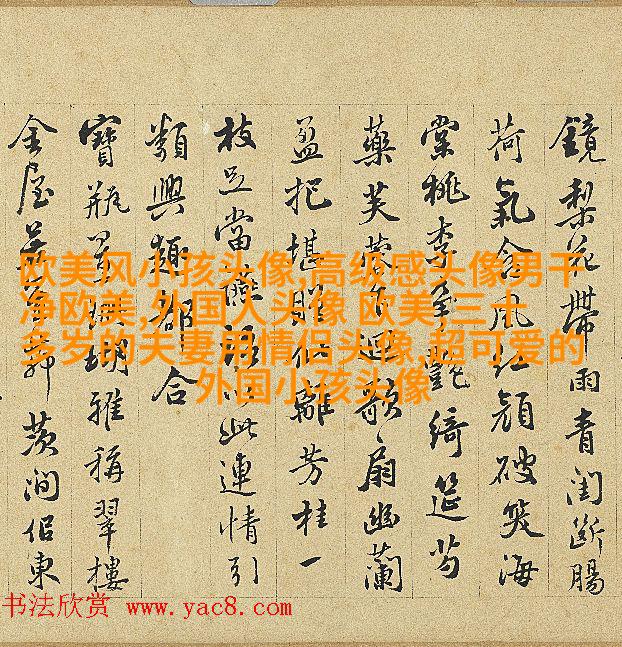 鏡梨花帶雨青閨斷腸
荷氣含風紅顏破笑海
棠桃李艷綺筵芍
藥芙蓉迴歌扇幽蘭
盈把堪贈佀離芳桂一
枝足當以此連情引
類興趣都合
寶瓶瑚雅稱翠樓
金屋舞茨澗佀東
欧美风小孩头像,高级感头像男干
净欧美,外国人头像 欧美,三十
多岁的夫妻用情侣头像,超可爱的
外国小孩头像
书法欣赏 www.yac8.com